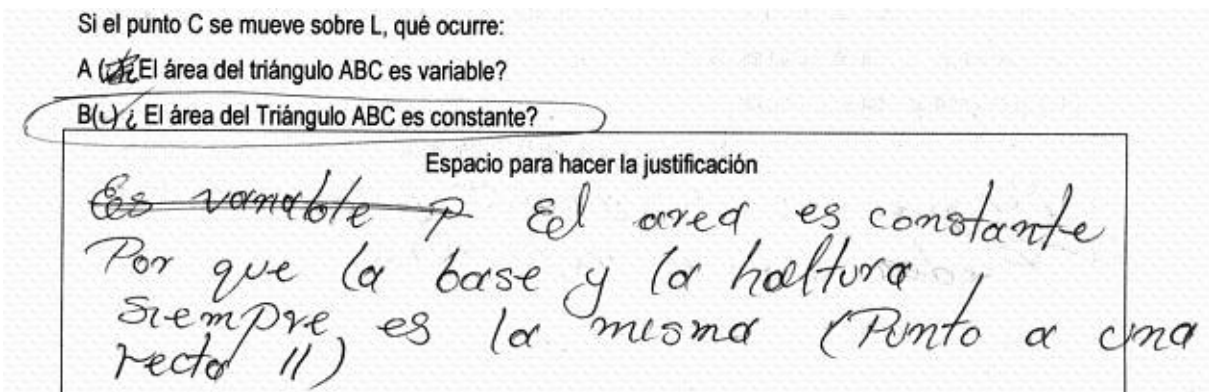 Si el punto C se mueve sobre L, qué ocurre:
A ( El área del triángulo ABC es variable?
B( ) ¿ El área del Triángulo ABC es constante?
Espacio para hacer la justificación
Es variable p El area es constante
Por que la base y la haltura
siempre es la misma (Punto a una
recta //)